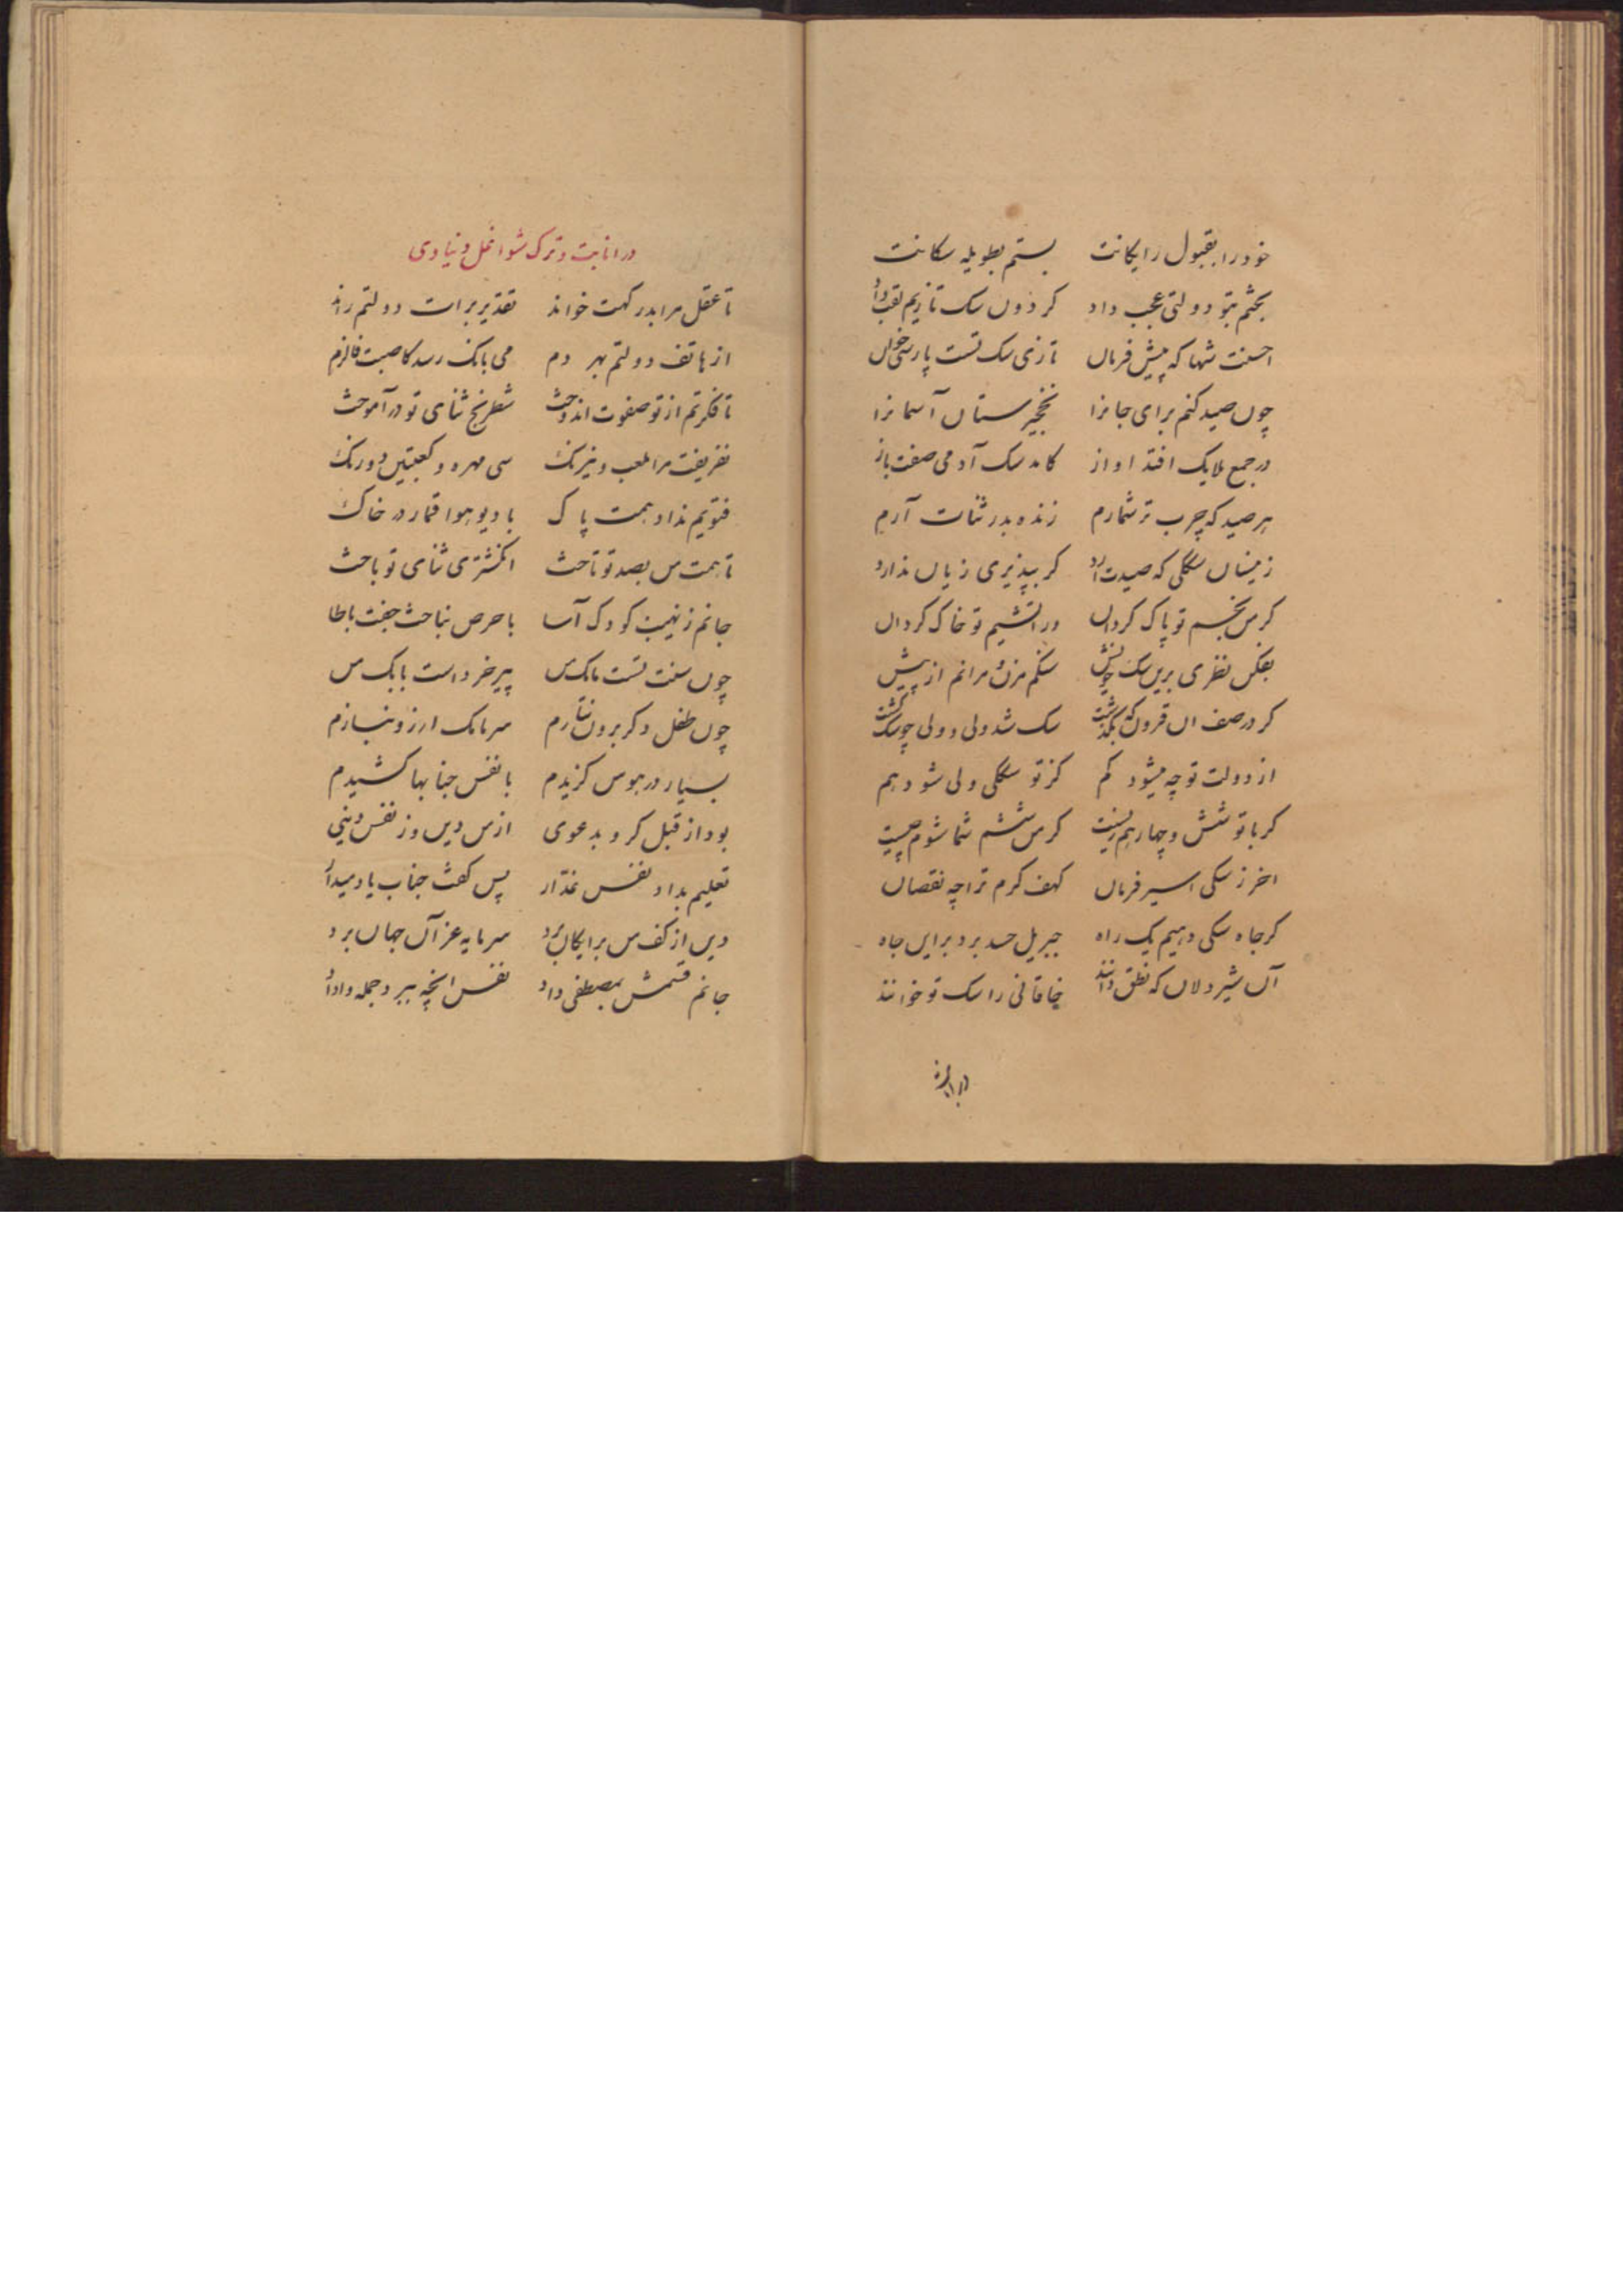 خود را بقبول رایکانت بستم بطویله سکانت
بختم بتو دولتی عجب داد کردون سک تازیم لقب داد
احسنت شها که پیش فرمان تازی سک تست پارسی خوان
چون صید کنم برای جانرا نخجیرستان آسمانرا
در جمع ملایک افتد اواز کامد سک آدمی صفت باز
هر صید که چرب تر شمارم زنده بدر ثنات آرم
زینسان سککی که صیدت آرد کر بپذیری زیان ندارد
کر من نجسم تو پاک کردان ور آتشیم تو خاک کردان
بفکن نظری برین سک خویش سنکم مزن و مرانم از پیش
کر در صف ان قرون که بگذشت سک شد ولی و ولی چو سک کشت
از دولت تو چه میشود کم کز تو سککی ولی شود هم
کر با تو شش و چهار هم زیست کر من ششم شما شوم چیست
اخر ز سکی اسیر فرمان کهف کرم ترا چه نقصان
کر جاه سکی دهیم یک راه جبریل حسد برد برین جاه
آن شیردلان که نطق دانند خاقانی را سک تو خوانند
در انابت
در انابت و ترک شواغل دنیاوی
تا عقل مرا بدرکهت خواند تقدیر برات دولتم راند
از هاتف دولتم بهر دم می بانک رسد کاصبت فالزم
تا فکرتم از تو صفوت اندوخت شطرنج ثنای تو درآموخت
نفریفت مرا بلعب و نیرنک سی مهره و کعبتین دو رنک
فتویم نداد همت پاک با دیو هوا قمار در خاک
تا همت من بصد تو تاخت انکشتری ثنای تو باخت
جانم ز نهیب کودک آسا با حرص نباخت جفت یا طا
چون سنت تست مامک من پیر خرد است بابک من
چون طفل دکر برون نتازم سرمامک ارزو نبازم
بسیار در هوس کزیدم با نفس جنابها کشیدم
بود از قبل کرو بدعوی از من دین وز نفس دینی
تعلیم بداد نفس غدار پس کفت جناب یاد میدار
دین از کف من برایکان برد سرمایه عز آن جهان برد
جانم قسمش بمصطفی داد نفس انچه ببرد جمله واداد